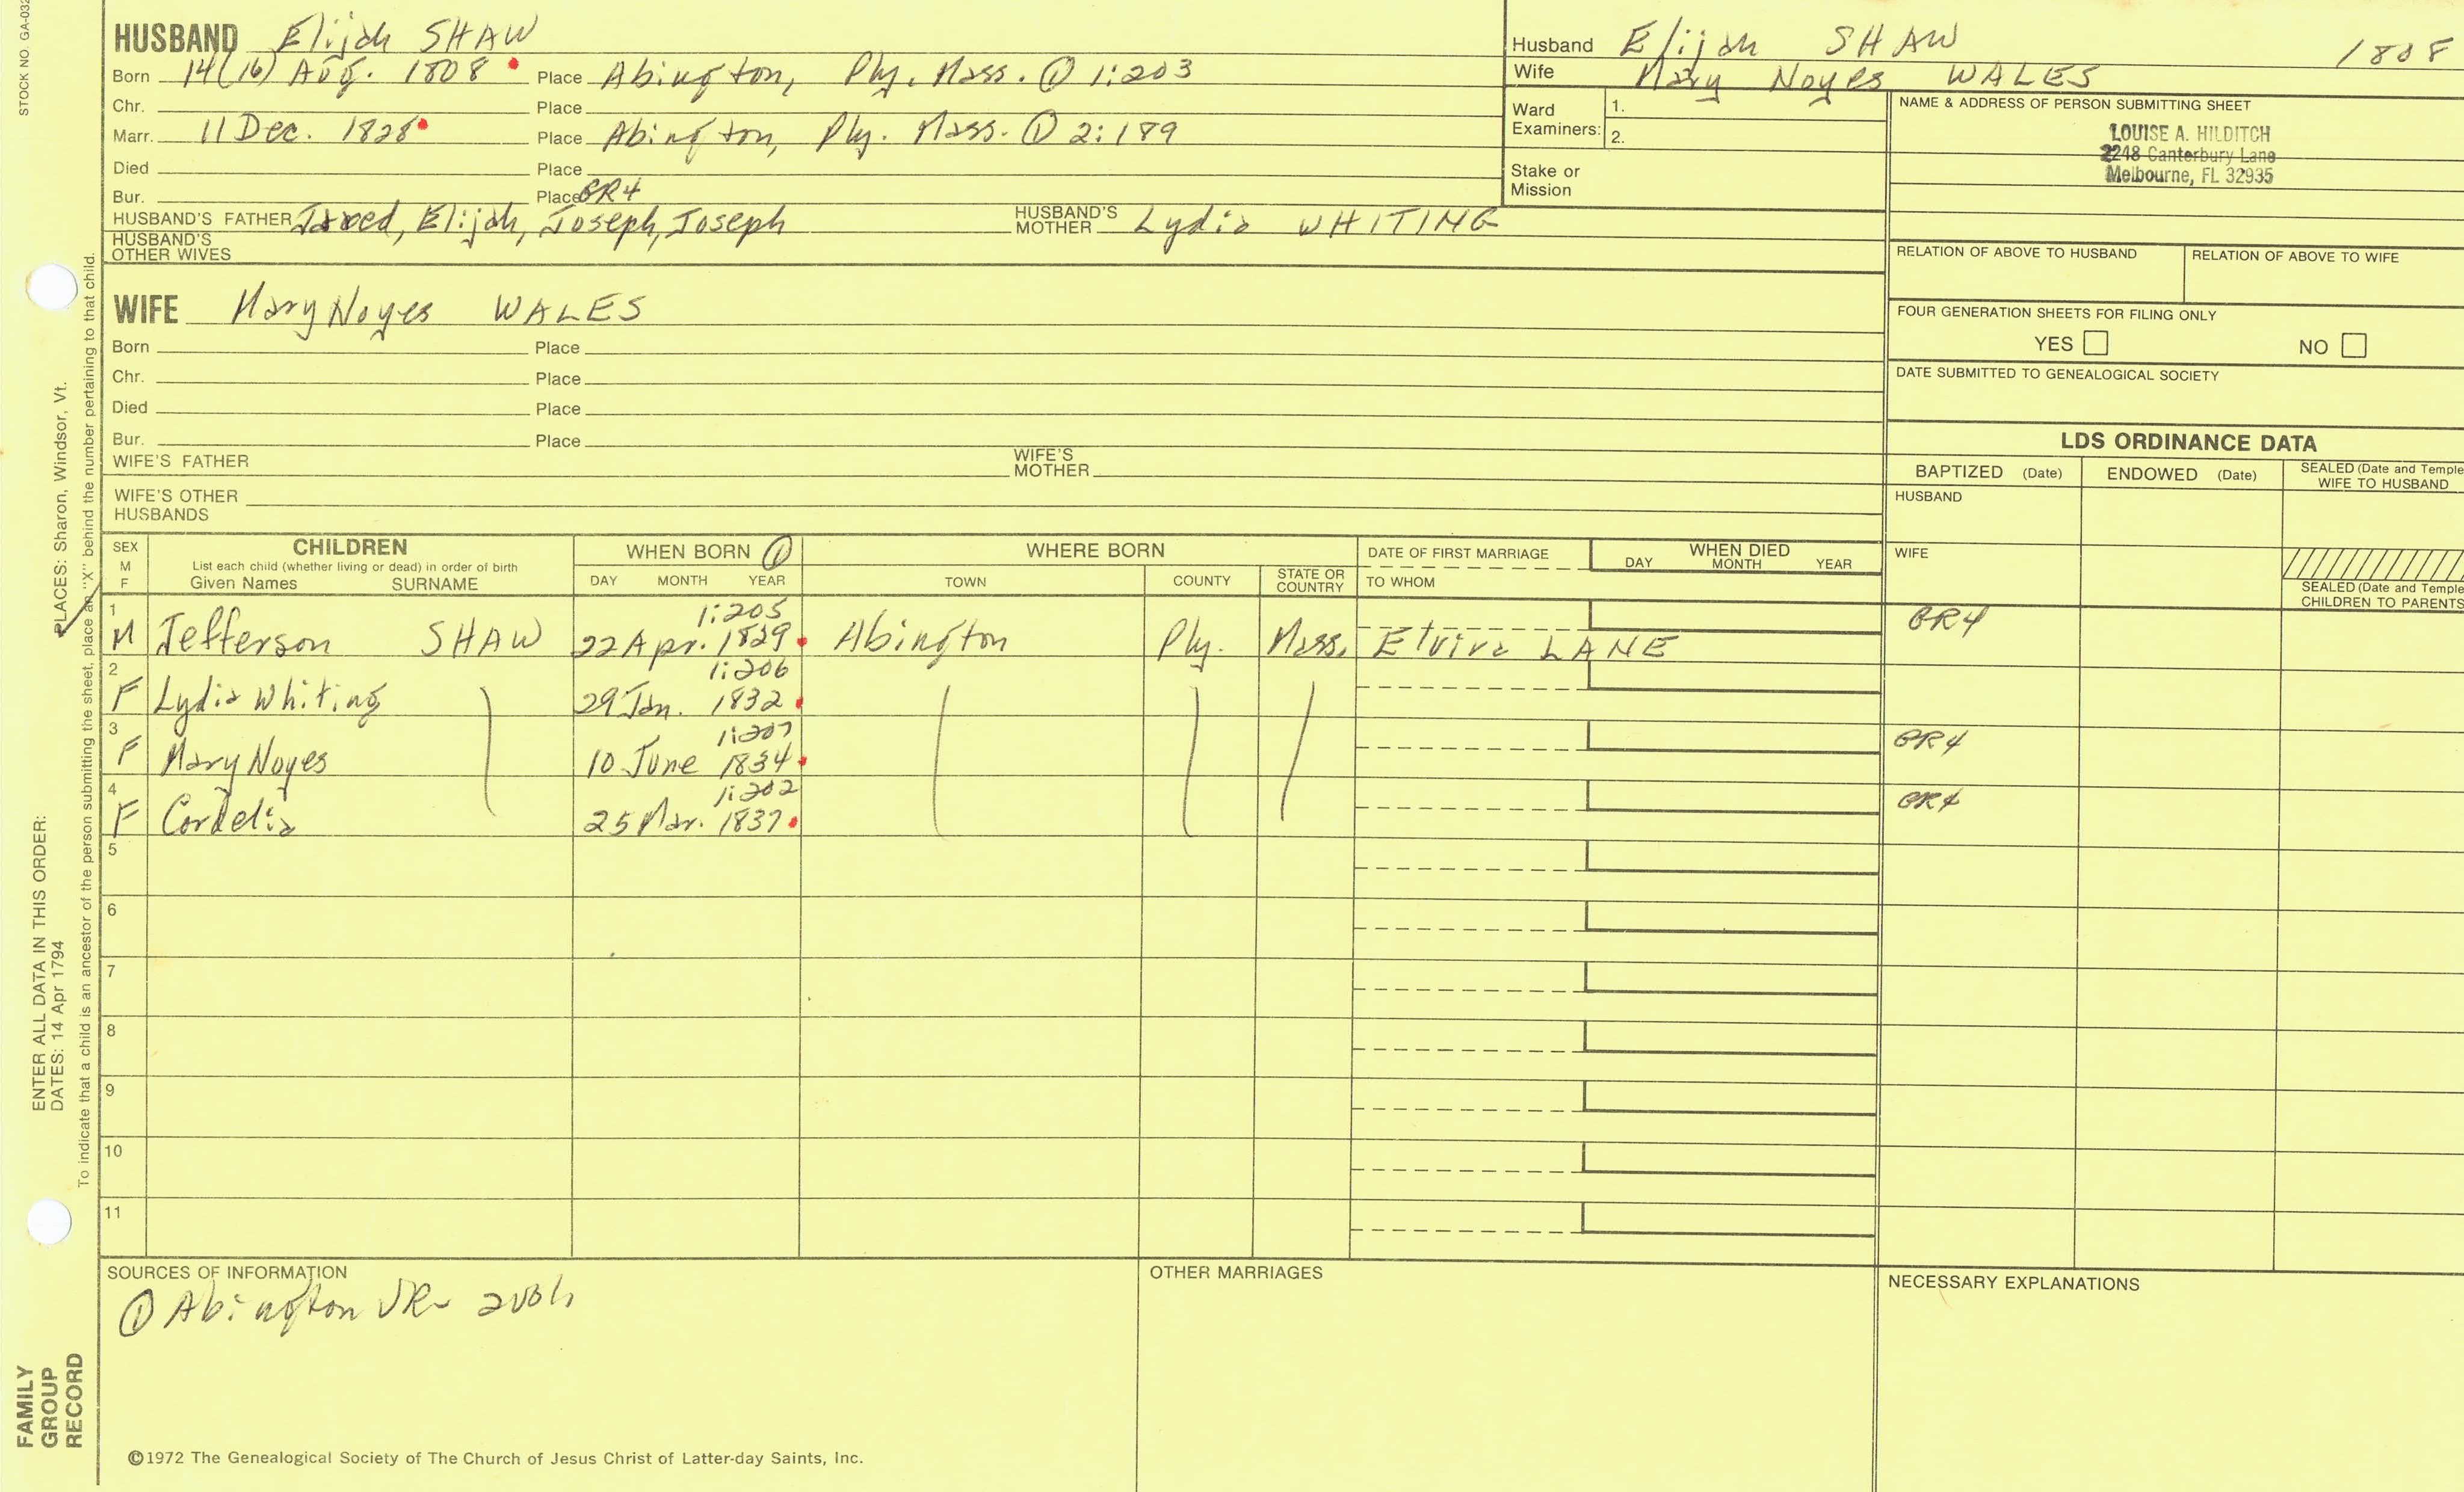 STOCK NO. GA-032
HUSBAND Elijah SHAW
Born 14(16) Aug. 1808 Place Abington, Ply. Mass. ① 1:203
Chr. Place
Marr. 11 Dec. 1828 Place Abington, Ply. Mass. ① 2:189
Died Place
Bur. Place GR4
HUSBAND'S FATHER Jared, Elijah, Joseph, Joseph HUSBAND'S MOTHER Lydia WHITING
HUSBAND'S OTHER WIVES
Husband Elijah SHAW 1808
Wife Mary Noyes WALES
Ward Examiners: 1.
2.
Stake or Mission
NAME & ADDRESS OF PERSON SUBMITTING SHEET
LOUISE A. HILDITCH
2248 Canterbury Lane
Melbourne, FL 32935
RELATION OF ABOVE TO HUSBAND RELATION OF ABOVE TO WIFE
FOUR GENERATION SHEETS FOR FILING ONLY
YES NO
DATE SUBMITTED TO GENEALOGICAL SOCIETY
WIFE Mary Noyes WALES
Born Place
Chr. Place
Died Place
Bur. Place
WIFE'S FATHER WIFE'S MOTHER
WIFE'S OTHER HUSBANDS
LDS ORDINANCE DATA
BAPTIZED (Date) ENDOWED (Date) SEALED (Date and Temple
WIFE TO HUSBAND
HUSBAND
WIFE
SEALED (Date and Temple
CHILDREN TO PARENTS
SEX M F CHILDREN WHEN BORN ① WHERE BORN DATE OF FIRST MARRIAGE WHEN DIED
List each child (whether living or dead) in order of birth
Given Names SURNAME DAY MONTH YEAR TOWN COUNTY STATE OR COUNTRY TO WHOM DAY MONTH YEAR
1 1:205
M Jefferson SHAW 22 Apr. 1829 Abington Ply. Mass. Elvira LANE GR4
2 1:206
F Lydia Whiting 29 Jan. 1832
3 1:207
F Mary Noyes 10 June 1834 GR4
4 1:202
F Cordelia 25 Mar. 1837 GR4
5
6
7
8
9
10
11
SOURCES OF INFORMATION
① Abington VR
OTHER MARRIAGES
NECESSARY EXPLANATIONS
©1972 The Genealogical Society of The Church of Jesus Christ of Latter-day Saints, Inc.
FAMILY
GROUP
RECORD
ENTER ALL DATA IN THIS ORDER:
DATES: 14 Apr 1794
PLACES: Sharon, Windsor, Vt.
To indicate that a child is an ancestor of the person submitting the sheet, place an "X" behind the number pertaining to that child.